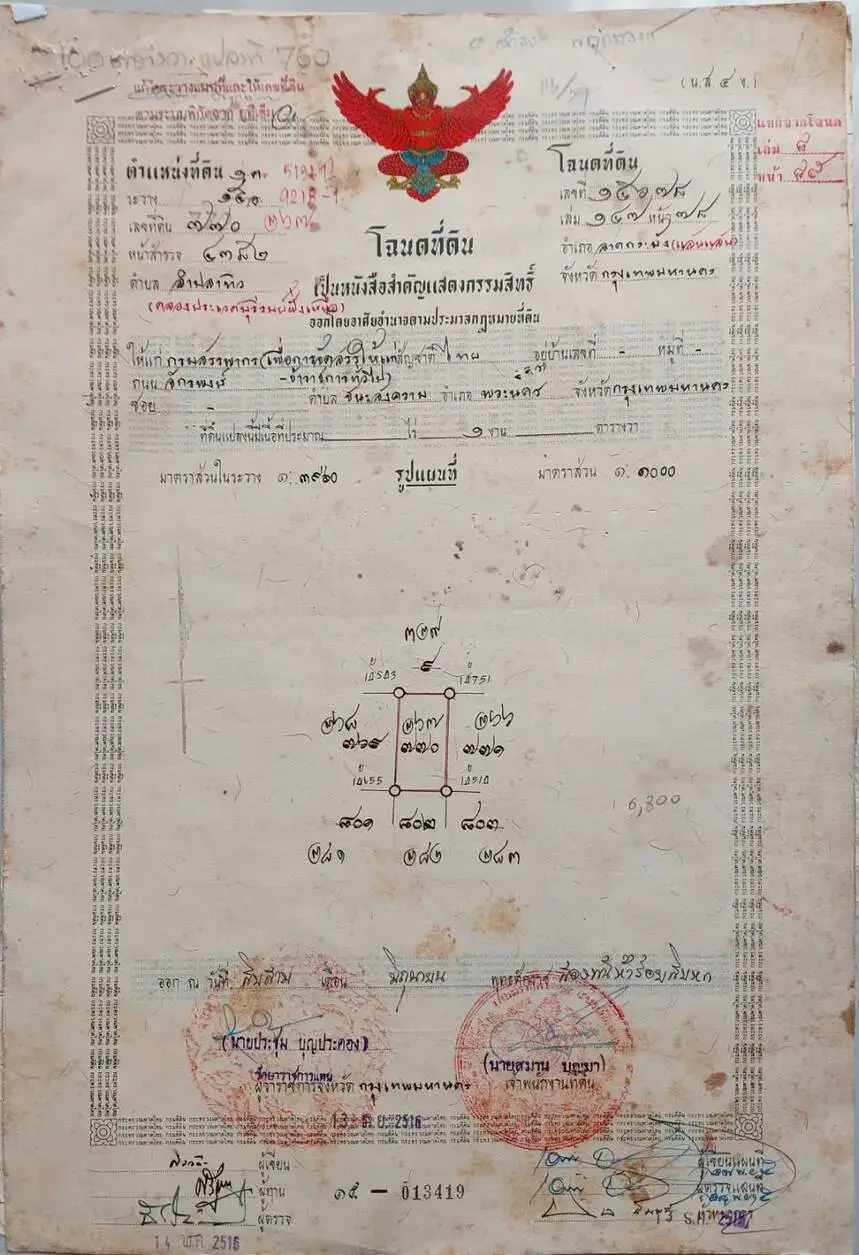 100 ตารางวา แปลงที่ 760
(น.ส. ๔ ง.)
แก้ไขระวางแผนที่และให้เลขที่ดิน
ตามระบบพิกัดฉาก ยูทีเอ็ม
แยกจากโฉนด
เล่ม ๘
หน้า ๙๙
ตำแหน่งที่ดิน
ระวาง 9218-1
เลขที่ดิน ๗๗๐ ๒๖๗
หน้าสำรวจ ๔๓๘๒
ตำบล ลำปลาทิว
(คลองประเวศบุรีรมย์ฝั่งเหนือ)
โฉนดที่ดิน
เลขที่ ๑๕๑๗๘
เล่ม ๑๔๗ หน้า ๗๘
อำเภอ ลาดกระบัง (แสนแสบ)
จังหวัด กรุงเทพมหานคร
โฉนดที่ดิน
เป็นหนังสือสำคัญแสดงกรรมสิทธิ์
ออกโดยอาศัยอำนาจตามประมวลกฎหมายที่ดิน
ให้แก่ กรมสรรพากร (เพื่อการจัดสรรให้แก่ สัญชาติ ไทย อยู่บ้านเลขที่ - หมู่ที่ -
ถนน จักรพงษ์ -ข้าราชการทั่วไป) ตำบล ชนะสงคราม อำเภอ พระนคร จังหวัด กรุงเทพมหานคร
ซอย -
ที่ดินแปลงนี้มีเนื้อที่ประมาณ ไร่ ๑ งาน ตารางวา
มาตราส่วนในระวาง ๑: ๓๙๖๐ รูปแผนที่ มาตราส่วน ๑: ๑๐๐๐
๓๒๙
๙
๒๖๘ ๒๖๗ ๒๖๖
๗๖๙ ๗๗๐ ๗๗๑
6,800
๘๐๑ ๘๐๒ ๘๐๓
๒๘๑ ๒๘๒ ๒๘๓
ออก ณ วันที่ สิบสาม เดือน มิถุนายน พุทธศักราช สองพันห้าร้อยสิบหก
(นายประชุม บุญประคอง)
รักษาราชการแทน
ผู้ว่าราชการจังหวัด กรุงเทพมหานคร
(นายสมาน บุญมา)
เจ้าพนักงานที่ดิน
ผู้เขียน
ผู้ทาน
ผู้ตรวจ
14 พ.ค. 2516
๑๕ — 013419
ผู้เขียนแผนที่
ผู้ตรวจแผนที่